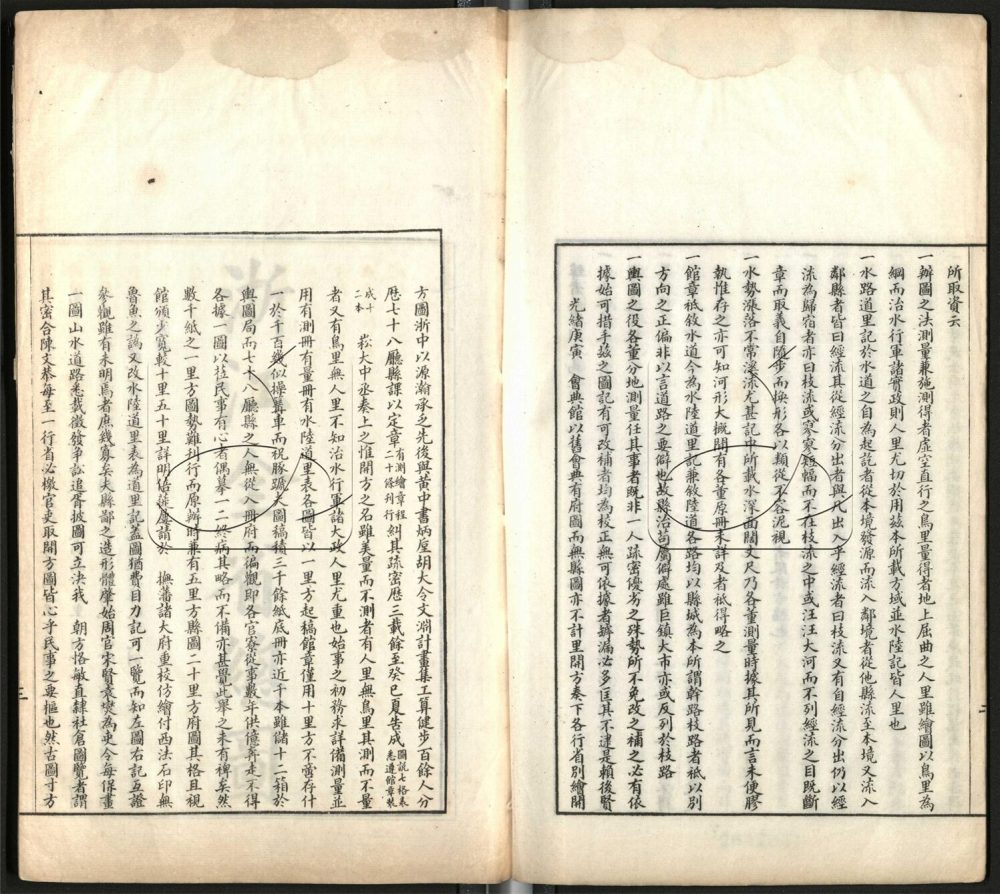 所取資云
一辦圖之法測量兼施測得者虛空直行之鳥里量得者地上屈曲之人里雖繪圖以鳥里為
綱而治水行軍諸實政則人里尤切於用茲本所載方域並水陸記皆人里也
一水路道里記於水道之自為起訖者從本境發源而流入鄰境者從他縣流至本境又流入
鄰縣者皆曰經流其從經流分出者與凡出入乎經流者曰枝流又有自經流分出仍以經
流為歸宿者亦曰枝流或寥寥短幅而不在枝流之中或汪汪大河而不列經流之目既斷
章而取義自隨步而換形各以類從不容泥視
一水勢漲落不常深淺尤甚記中所載水深面闊丈尺乃各董測量時據其所見而言未便膠
執惟存之亦可知河形大概間有各董原冊未詳及者祗得略之
一館章祗敘水道今為水陸道里記兼敘陸道各路均以縣城為本所謂幹路枝路者祗以別
方向之正偏非以言道路之要僻也故縣治苟屬僻處雖巨鎮大市亦或反列於枝路
一輿圖之役各董分地測量任其事者既非一人疏密優劣之殊勢所不免改之補之必有依
據始可措手茲之圖記有可改補者均為校正無可依據者罅漏必多匡其不逮是賴後賢
光緒庚寅　會典館以舊會典有府圖而無縣圖亦不計里開方奏下各行省別繪開
方圖浙中以源瀚承之先後與黃中書炳垕胡大令文淵計畫集工算健步百餘人分
厯七十八廳縣課以定章有測繪章程二十條刊行糾其疏密厯三載餘至癸巳夏告成圖說七格表悉遵館章裝
成二十本　崧大中丞奏上之惟開方之名雖美量而不測者有人里無鳥里其測而不量
者又有鳥里無人里不知治水行軍諸大政人里尤重也始事之初務求詳備測量並
用有測冊有量冊有水陸道里表各圖皆以一里方起稿館章僅用十里方不啻存什
一於千百幾似操豚蹄而祝圖稿積三千餘紙底冊亦近千本雖儲十二箱於
輿圖局而七十八廳縣之人無從入冊府而徧觀即各官寮從事數年供億奔走不得
各據一圖以拄民事有心者偶摹一二終病其略而不備亦甚覺此舉之未有裨矣然
數千紙之一里方圖勢難刊行而原辦時兼有五里方縣圖二十里方府圖其格且視
館頒少寬較十里五十里詳明請於　撫藩諸大府重校仿繪付西法石印無
魯魚之譌又改水陸道里表為道里記蓋圖猶費目力記可一覽而知左圖右記互證
參觀雖有未明焉者庶幾寡矣夫縣鄙之造形體肇始周官宋賢袁燮為吏令每保畫
一圖山水道路悉載徵發爭訟追胥披圖可立決我　朝方恪敏直隸社倉圖覽者謂
其密合陳文恭每至一行省必檄官吏取開方圖皆心乎民事之要樞也然古圖寸方
二
三